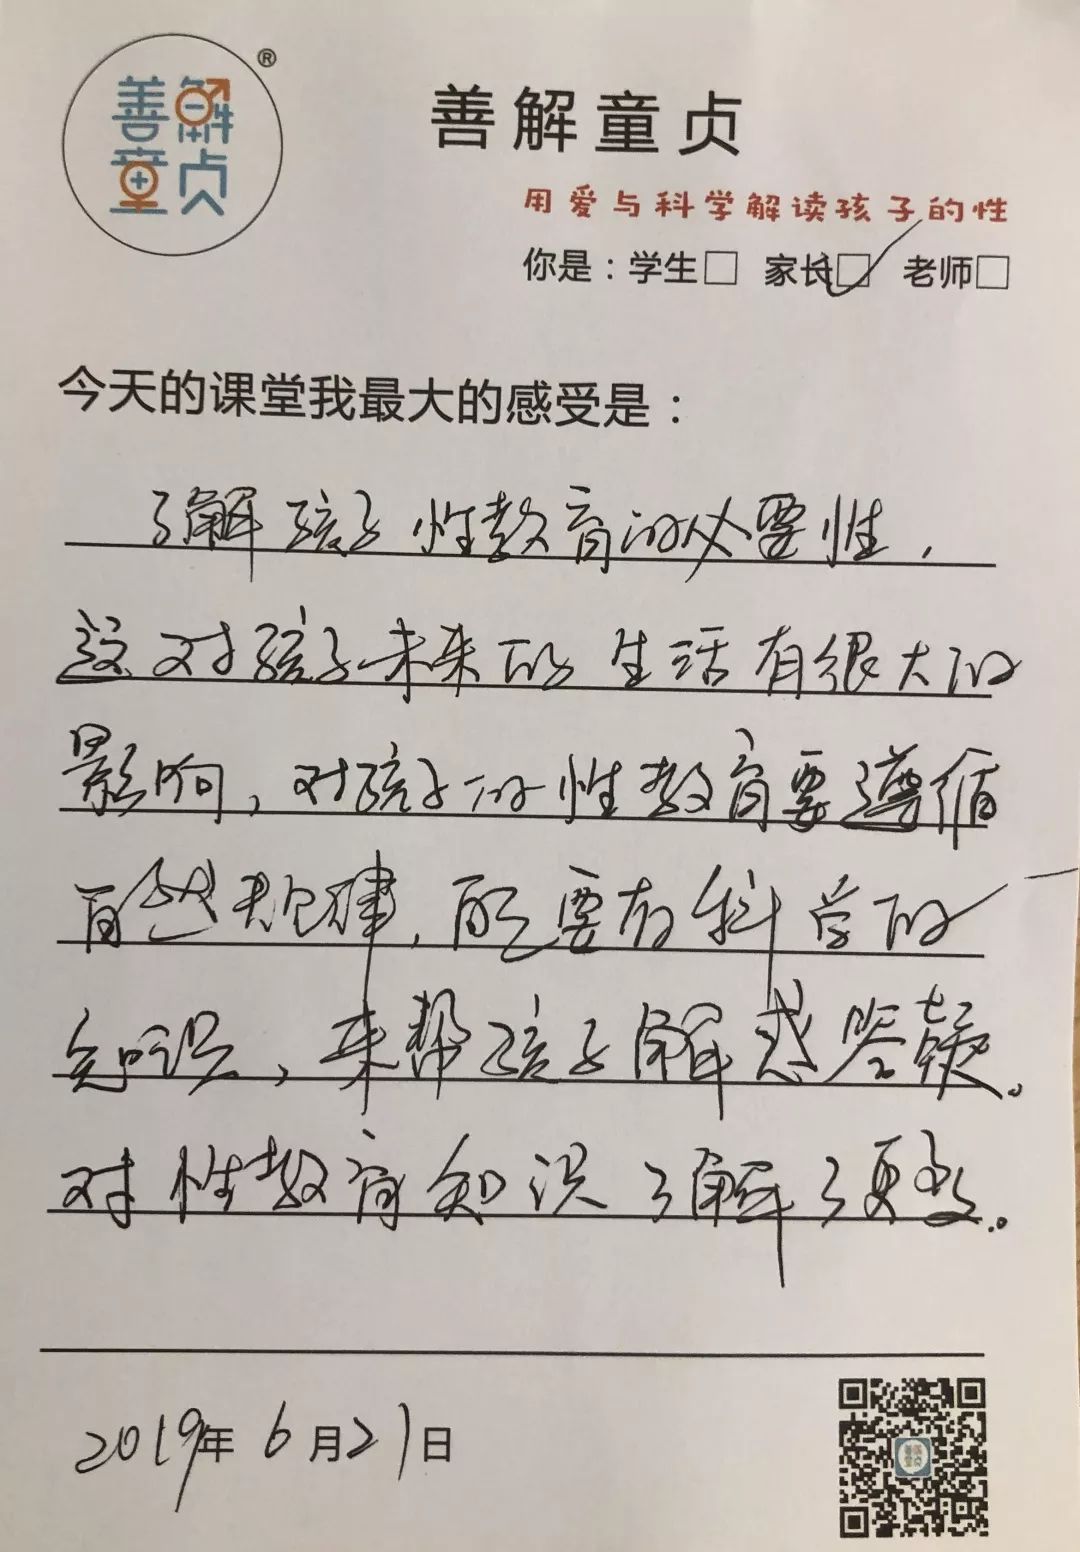 善解
童贞
®
善解童贞
用爱与科学解读孩子的性
你是：学生□ 家长□ 老师□
今天的课堂我最大的感受是：
了解孩子性教育的必要性，
这对孩子未来的生活有很大的
影响，对孩子的性教育要遵循
自然规律，更要有科学的
知识，来帮孩子解惑答疑。
对性教育知识了解了更多。
2019年6月21日